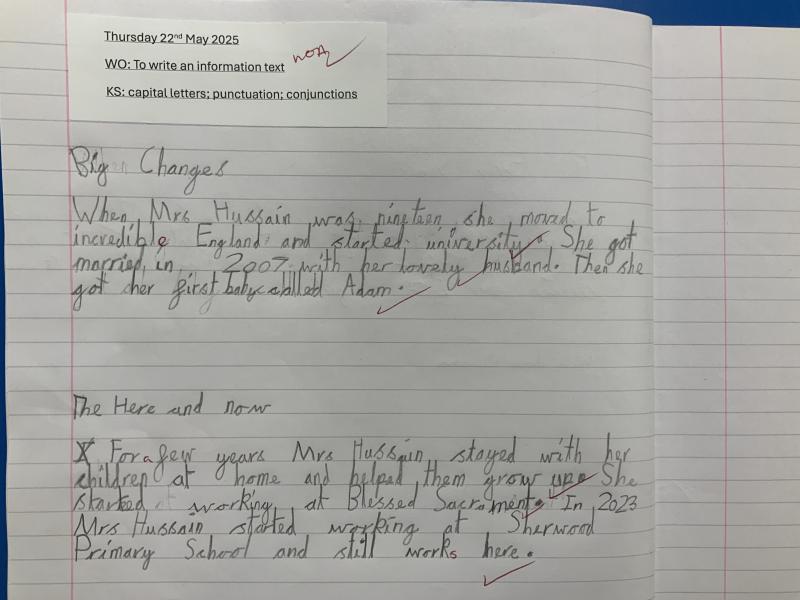 Thursday 22nd May 2025
WO: To write an information text
KS: capital letters; punctuation; conjunctions
Big Changes
When Mrs Hussain was nineteen she moved to
incredible England and started university. She got
married in 2007 with her lovely husband. Then she
got her first baby called Adam.
The Here and now
For a few years Mrs Hussain stayed with her
children at home and helped them grow up. She
started working at Blessed Sacrament. In 2023
Mrs Hussain started working at Sherwood
Primary School and still works here.